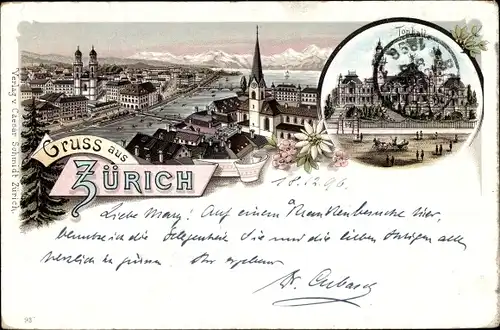 Tonhalle
Verlag v. Caesar Schmidt Zürich.
Gruss aus
ZÜRICH
18.12.96.
Liebe Mary! Auf einem Krankenbesuche hier,
benutze ich die Gelegenheit Sie und die lieben Ihrigen alle
herzlich zu grüssen. Ihr ergebener
Dr.